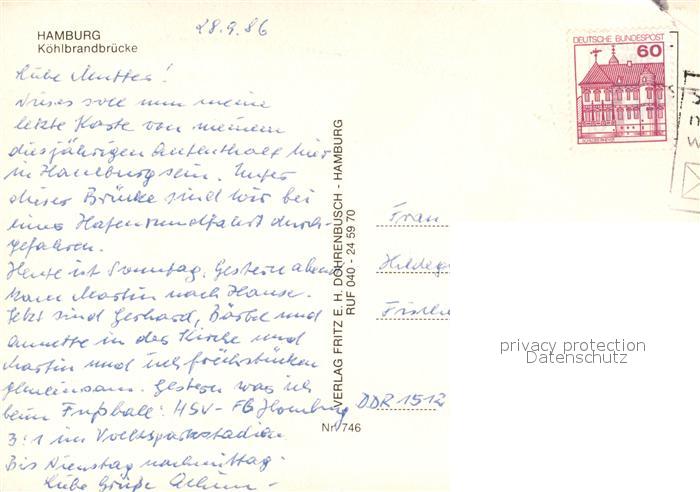 HAMBURG
Köhlbrandbrücke
28.9.86
Liebe Mutter!
Dieses soll nun meine
letzte Karte von meinem
diesjährigen Aufenthalt hier
in Hamburg sein. Unter
dieser Brücke sind wir bei
einer Hafenrundfahrt durch-
gefahren.
Heute ist Sonntag. Gestern abend
kam Martin nach Hause.
Jetzt sind Gerhard, Bärbel und
Annette in der Kirche und
Martin und ich frühstücken
gemeinsam. Gestern war ich
beim Fußball: HSV - FC Homburg
3:1 im Volksparkstadion
Bis Dienstag nachmittag.
Liebe Grüße
VERLAG FRITZ E. H. DOHRENBUSCH - HAMBURG
RUF 040 - 24 59 70
Nr. 746
DEUTSCHE BUNDESPOST
60
Frau
Hildeg
DDR 1512
privacy protection
Datenschutz